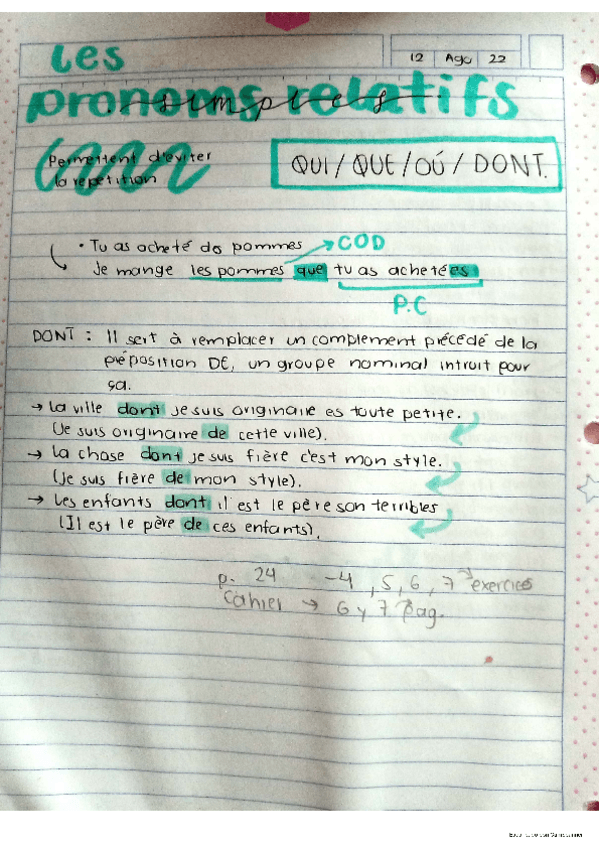 Les
12 Ago 22
pronoms relatifs
simples
Permettent d'eviter
la repetition
QUI / QUE / OÚ / DONT.
• Tu as acheté des pommes → COD
Je mange les pommes que tu as achetées
P.C
DONT : Il sert à remplacer un complement précédé de la
préposition DE, un groupe nominal intruit pour
ça.
→ La ville dont je suis originaire es toute petite.
(Je suis originaire de cette ville).
→ La chose dont je suis fière c'est mon style.
(je suis fière de mon style).
→ Les enfants dont il est le père son terribles
(Il est le père de ces enfants).
p. 24 -4, 5, 6, 7 → exercices
Cahier → 6 y 7 pag.